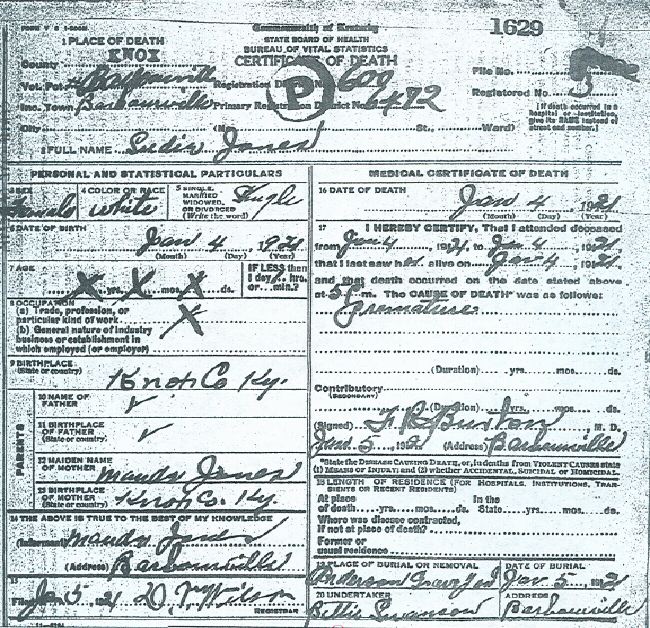 Commonwealth of Kentucky
STATE BOARD OF HEALTH
BUREAU OF VITAL STATISTICS
CERTIFICATE OF DEATH
1629
1 PLACE OF DEATH
County KNOX
Vot. Pct. Barbourville Registration District No. 600
Inc. Town Barbourville Primary Registration District No. 6472
City (No. St., Ward)
File No.
Registered No. 3
(If death occurred in a hospital or institution, give its NAME instead of street and number.)
2 FULL NAME Jones
PERSONAL AND STATISTICAL PARTICULARS
3 SEX Female
4 COLOR OR RACE White
5 SINGLE, MARRIED WIDOWED, OR DIVORCED (Write the word) Single
6 DATE OF BIRTH
Jan 4 , 1921
(Month) (Day) (Year)
7 AGE
X yrs. X mos. X ds.
IF LESS than 1 day hrs. or min.?
8 OCCUPATION
(a) Trade, profession, or particular kind of work X
(b) General nature of industry business or establishment in which employed (or employer)
9 BIRTHPLACE (State or country) Knox Co Ky.
PARENTS
10 NAME OF FATHER ✓
11 BIRTHPLACE OF FATHER (State or country) ✓
12 MAIDEN NAME OF MOTHER Maudy Jones
13 BIRTHPLACE OF MOTHER (State or country) Knox Co. Ky.
14 THE ABOVE IS TRUE TO THE BEST OF MY KNOWLEDGE
(Informant) Maudy Jones
(Address) Barbourville
15
Filed Jan 5, 1921 Wilson
REGISTRAR
MEDICAL CERTIFICATE OF DEATH
16 DATE OF DEATH
Jan 4 , 1921
(Month) (Day) (Year)
17 I HEREBY CERTIFY, That I attended deceased
from Jan 4, 1921, to Jan 4, 1921
that I last saw her alive on Jan 4, 1921
and that death occurred on the date stated above
at m. The CAUSE OF DEATH* was as follows:
Premature
(Duration) yrs. mos. ds.
Contributory
(SECONDARY)
(Duration) yrs. mos. ds.
(Signed) Burton, M. D.
Jan. 5, 192 (Address) Barbourville
*State the DISEASE CAUSING DEATH, or, in deaths from VIOLENT CAUSES state
(1) MEANS OF INJURY; and (2) whether ACCIDENTAL, SUICIDAL or HOMICIDAL.
18 LENGTH OF RESIDENCE (FOR HOSPITALS, INSTITUTIONS, TRANSIENTS OR RECENT RESIDENTS)
At place of death yrs. mos. ds. In the State yrs. mos. ds.
Where was disease contracted, if not at place of death?
Former or usual residence
19 PLACE OF BURIAL OR REMOVAL
DATE OF BURIAL
Jan. 5, 1921
20 UNDERTAKER
ADDRESS
Barbourville